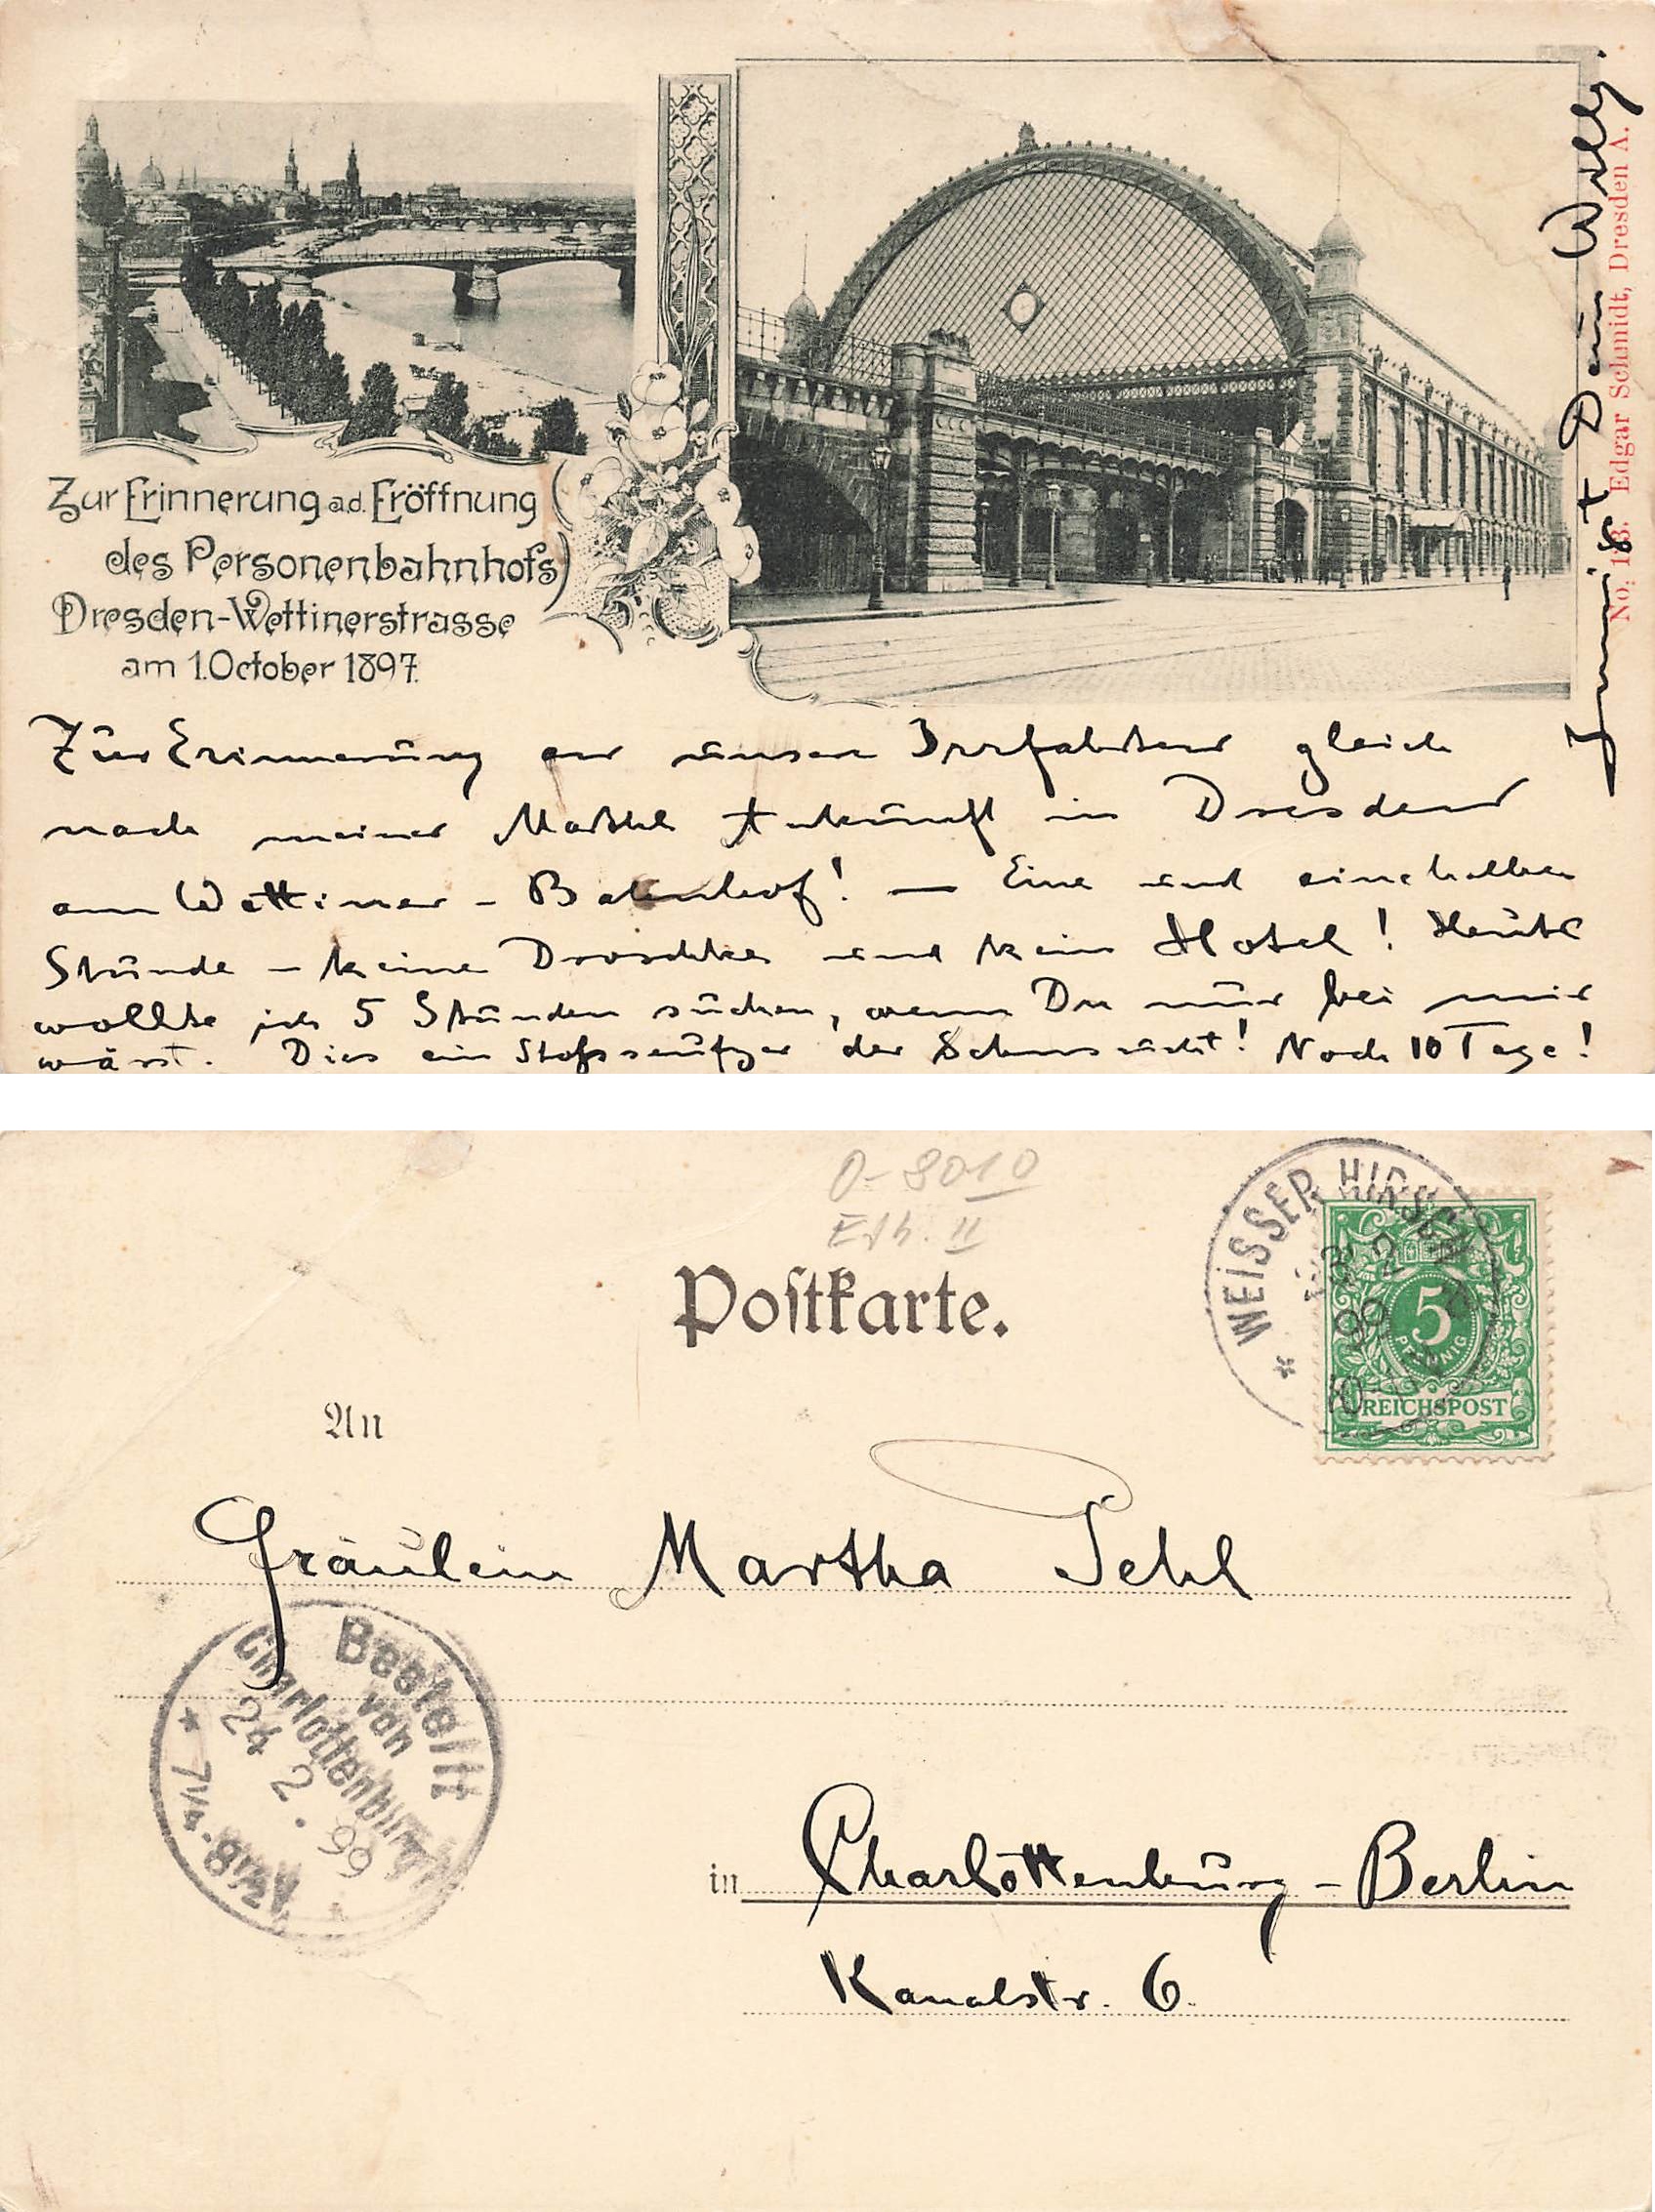 Zur Erinnerung a.d. Eröffnung
des Personenbahnhofs
Dresden-Wettinerstrasse
am 1.October 1897.
No. 113. Edgar Schmidt, Dresden A.
Zur Erinnerung an unsere Irrfahrten gleich
nach meiner Martha Ankunft in Dresden
am Wettiner-Bahnhof! — Eine und eine halbe
Stunde – keine Droschke und kein Hotel! Heute
wollte ich 5 Stunden suchen, wenn Du nur bei mir
wärst. Dies ein Stoßseufzer der Sehnsucht! Noch 10 Tage!
Innigst Dein Willy.
O-8010
Erh. II
Postkarte.
WEISSER HIRSCH
23 2 99
5
PFENNIG
REICHSPOST
An
Fräulein Martha Pehl
Bestellt
von
Charlottenburg
24 2. 99
* 7 1/4-8 1/2 V.
in Charlottenburg-Berlin
Kanalstr. 6.